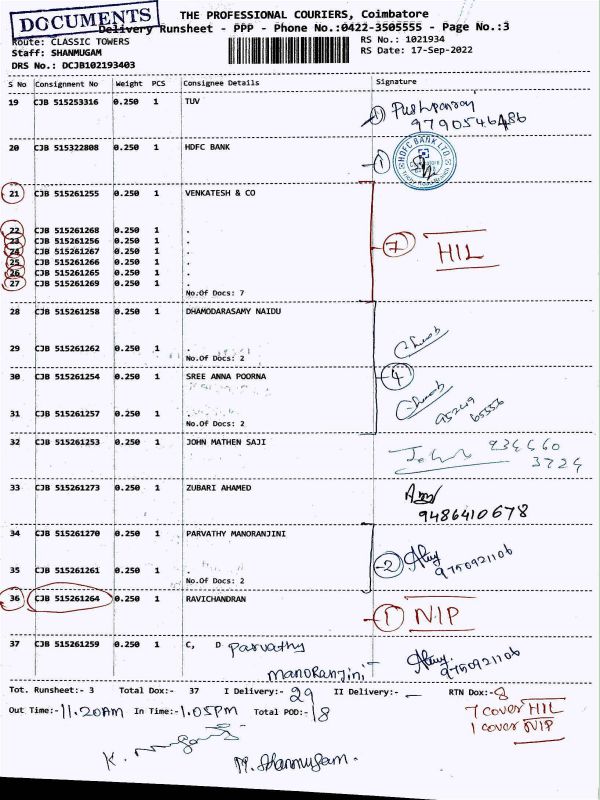 DOCUMENTS
THE PROFESSIONAL COURIERS, Coimbatore
Delivery Runsheet - PPP - Phone No.:0422-3505555 - Page No.:3
Route: CLASSIC TOWERS
RS No.: 1021934
Staff: SHANMUGAM
RS Date: 17-Sep-2022
DRS No.: DCJB102193403
S No Consignment No Weight PCS Consignee Details Signature
19 CJB 515253316 0.250 1 TUV
9790546486
20 CJB 515322808 0.250 1 HDFC BANK
1
HDFC BANK LTD
21 CJB 515261255 0.250 1 VENKATESH & CO
22 CJB 515261268 0.250 1 .
23 CJB 515261256 0.250 1 .
24 CJB 515261267 0.250 1 .
25 CJB 515261266 0.250 1 .
26 CJB 515261265 0.250 1 .
27 CJB 515261269 0.250 1 .
No.Of Docs: 7
7 HIL
28 CJB 515261258 0.250 1 DHAMODARASAMY NAIDU
29 CJB 515261262 0.250 1 .
No.Of Docs: 2
30 CJB 515261254 0.250 1 SREE ANNA POORNA
4
31 CJB 515261257 0.250 1 .
No.Of Docs: 2
32 CJB 515261253 0.250 1 JOHN MATHEN SAJI
John
33 CJB 515261273 0.250 1 ZUBARI AHAMED
9486410678
34 CJB 515261270 0.250 1 PARVATHY MANORANJINI
35 CJB 515261261 0.250 1 .
No.Of Docs: 2
2 9750921106
36 CJB 515261264 0.250 1 RAVICHANDRAN
1 NIP
37 CJB 515261259 0.250 1 C, D Parvathy
Manoranjini
9750921106
Tot. Runsheet:- 3 Total Dox:- 37 I Delivery:- 29 II Delivery:- - RTN Dox:- 8
Out Time:- 11.20AM In Time:- 1.05PM Total POD:- 18
7 cover HIL
1 cover NIP
M. Shanmugam.